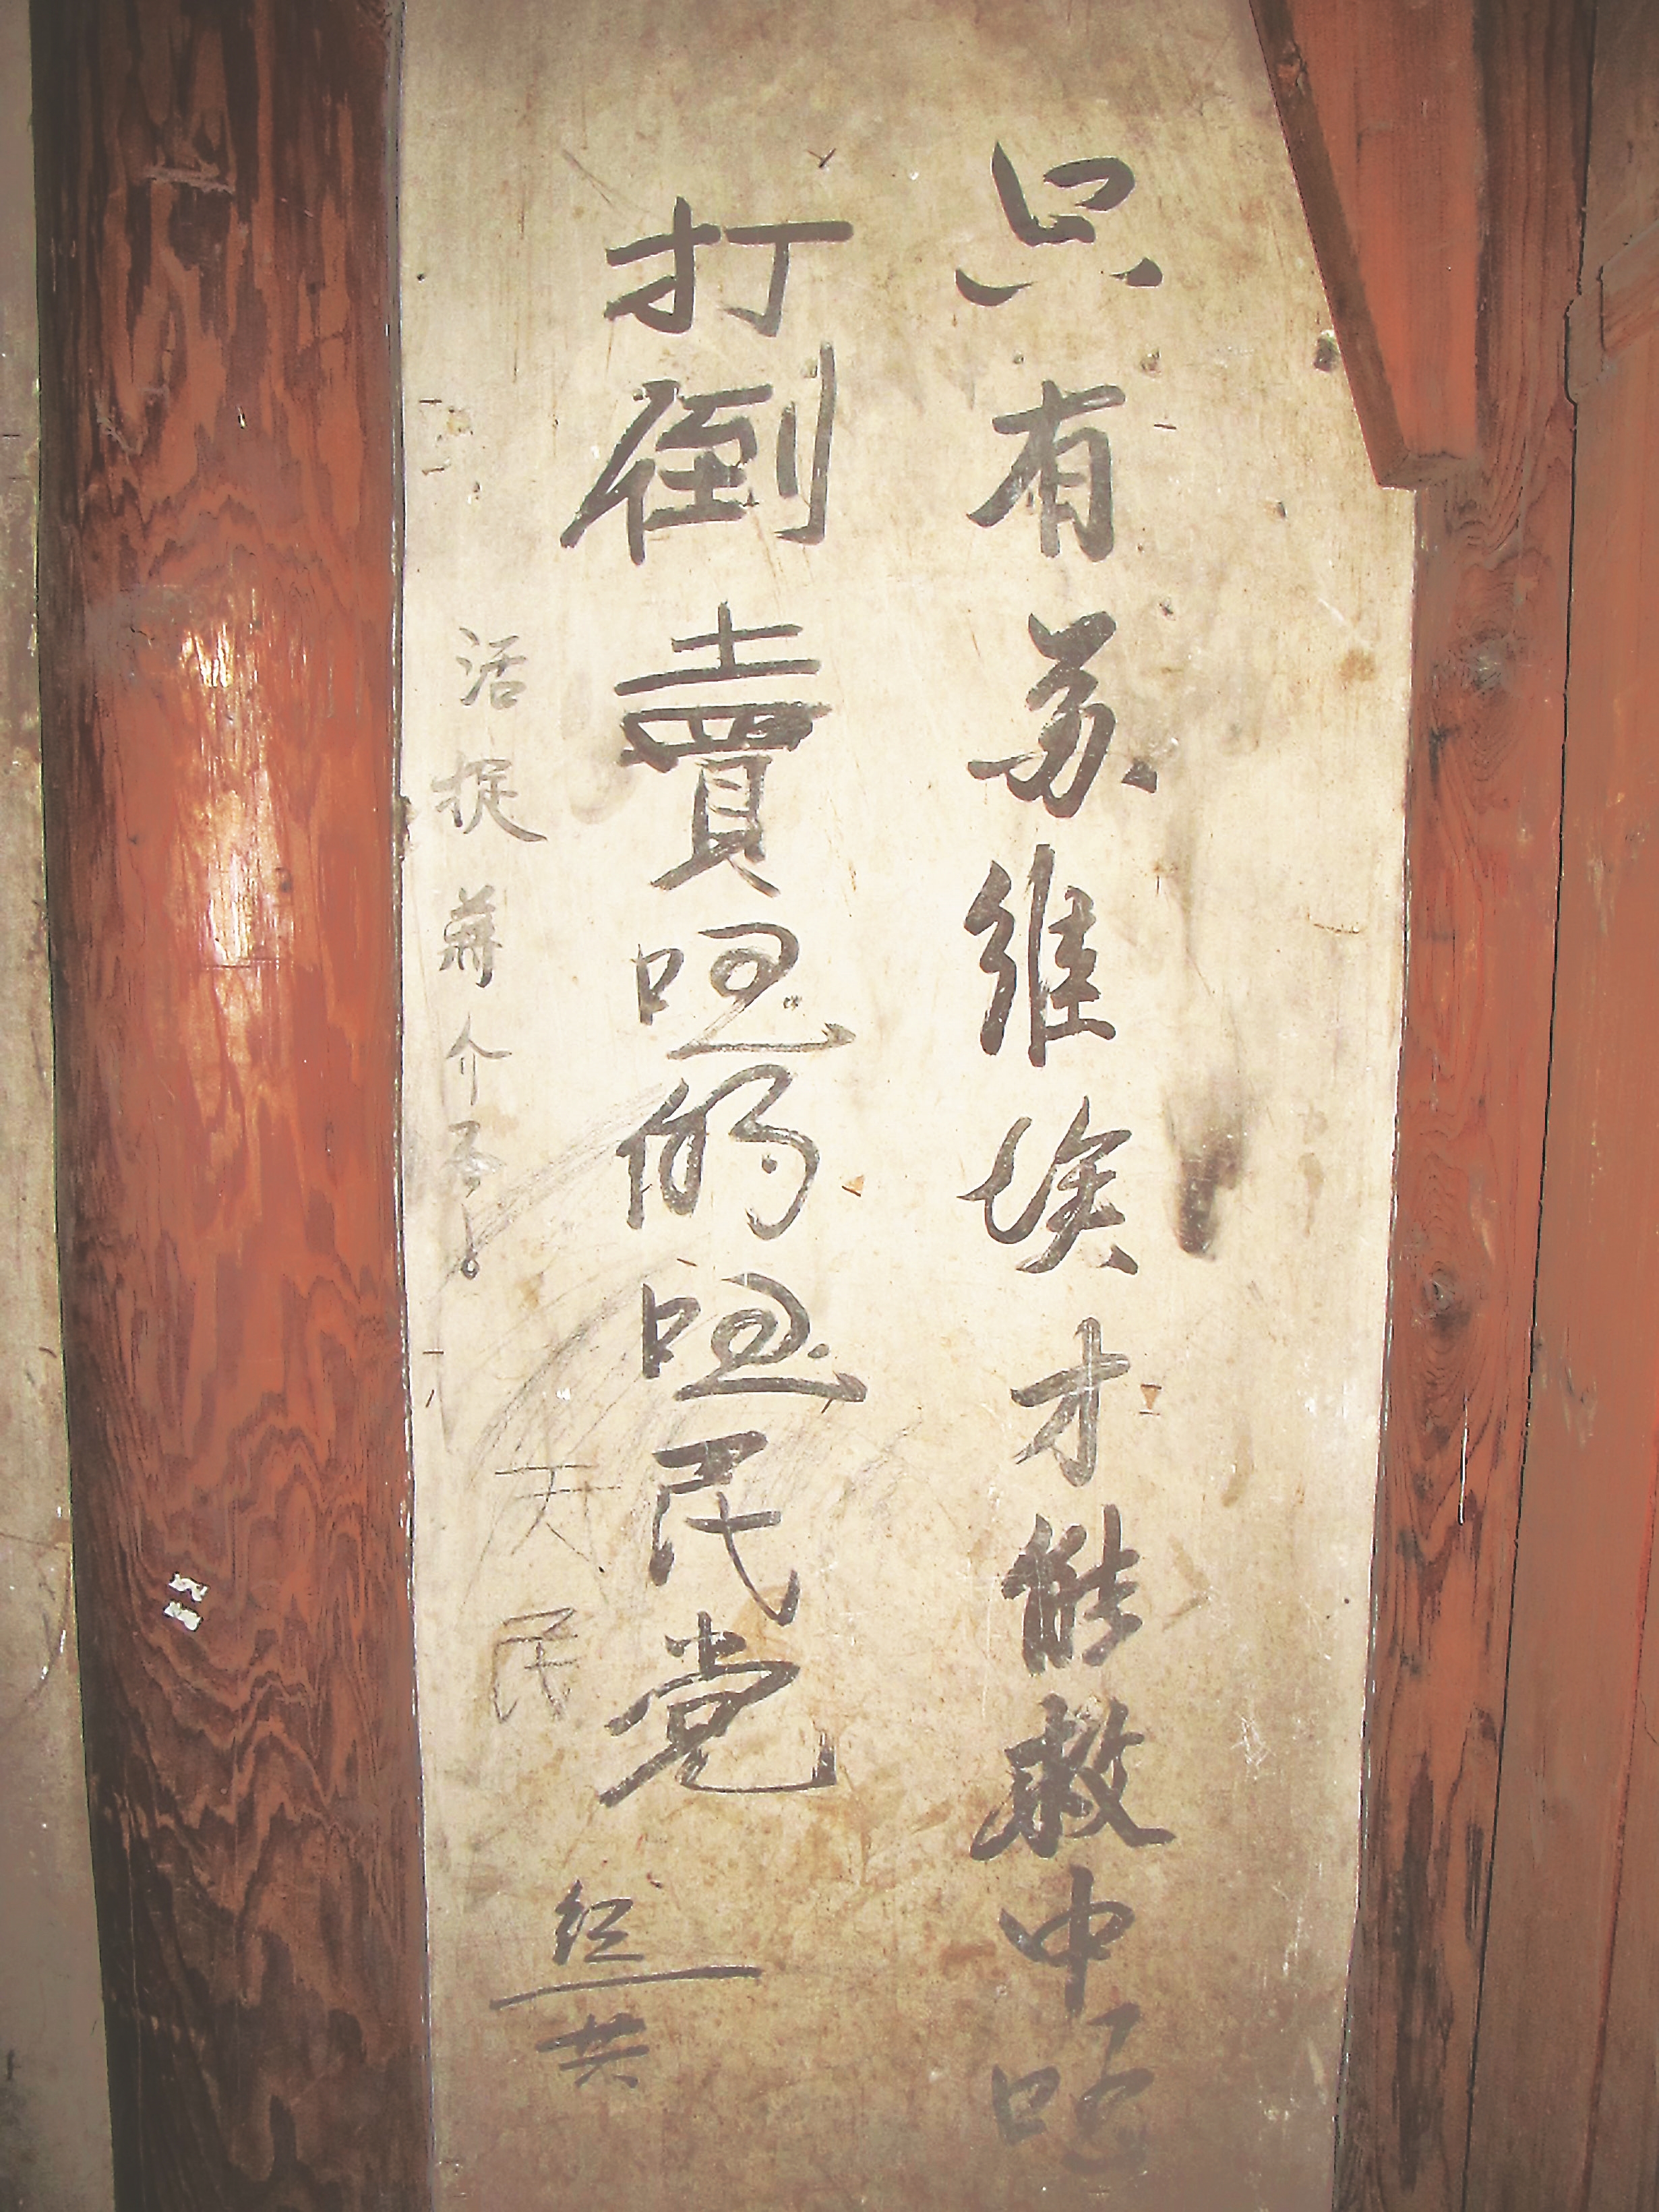 只有苏维埃才能救中国
打倒賣国的国民党
红共
活捉蒋介石
天民